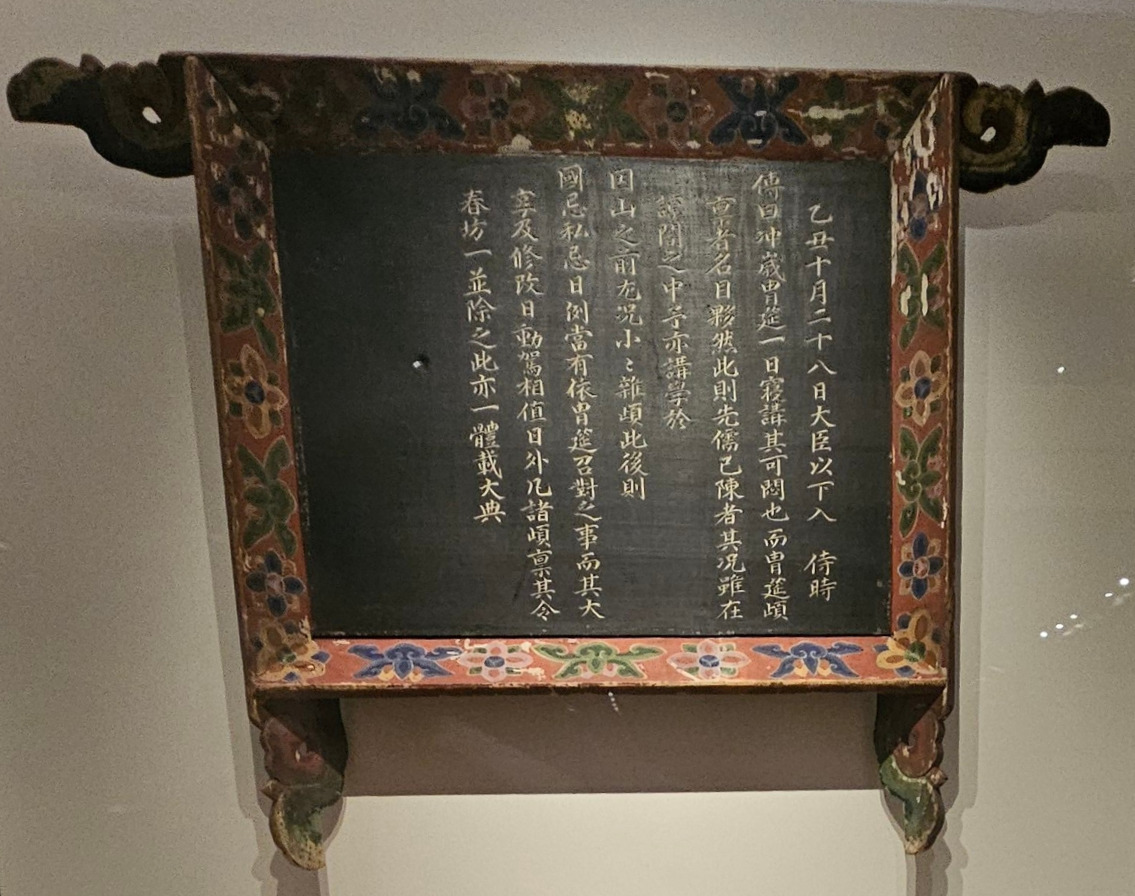 乙丑十月二十八日大臣以下入 侍時
傳曰冲歲胄筵一日寢講其可悶也而胄筵頉
稟者名目夥然此則先儒已陳者其况雖在
諒闇之中予亦講學於
因山之前尤况小〻雜頉此後則
國忌私忌日例當有依胄筵召對之事而其大
享及修改日動駕相值日外凡諸頉稟其令
春坊一並除之此亦一體載大典